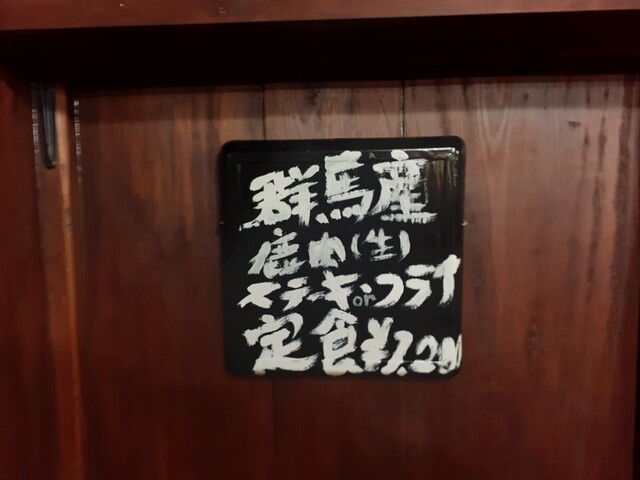 群馬産
鹿肉(生)
ステーキorフライ
定食¥1.200